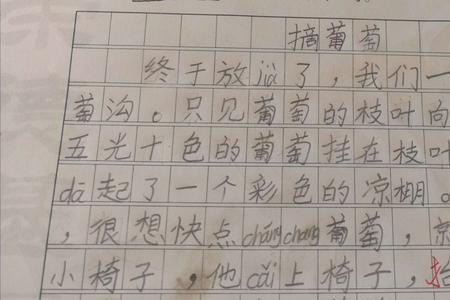 摘葡萄
终于放jià了，我们一
萄沟。只见葡萄的枝叶向
五光十色的葡萄挂在枝叶
dā起了一个彩色的凉棚。
，很想快点chángchang葡萄，京
小椅子，他cǎi上椅子，抬